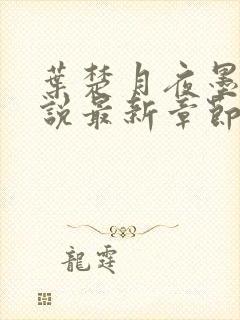 葉楚月夜墨
說最新章節
龍霆